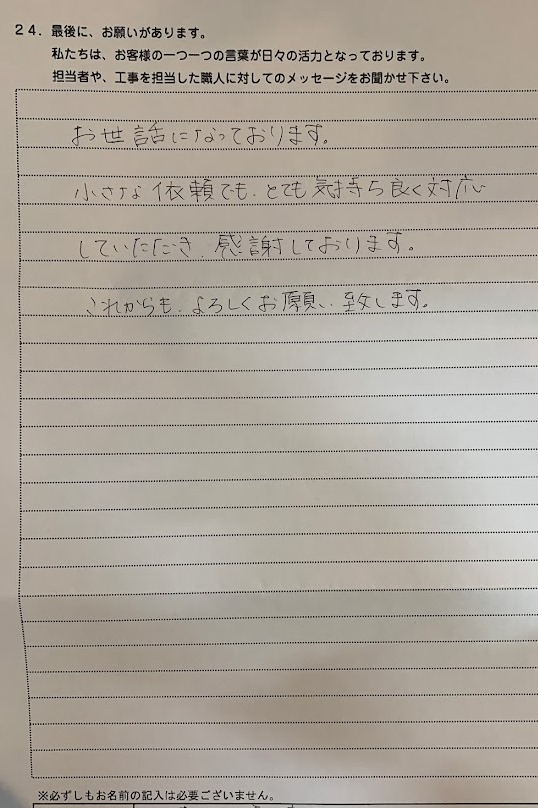 24．最後に、お願いがあります。
私たちは、お客様の一つ一つの言葉が日々の活力となっております。
担当者や、工事を担当した職人に対してのメッセージをお聞かせ下さい。
お世話になっております。
小さな依頼でも、とても気持ち良く対応
していただき、感謝しております。
これからも、よろしくお願い致します。
※必ずしもお名前の記入は必要ございません。